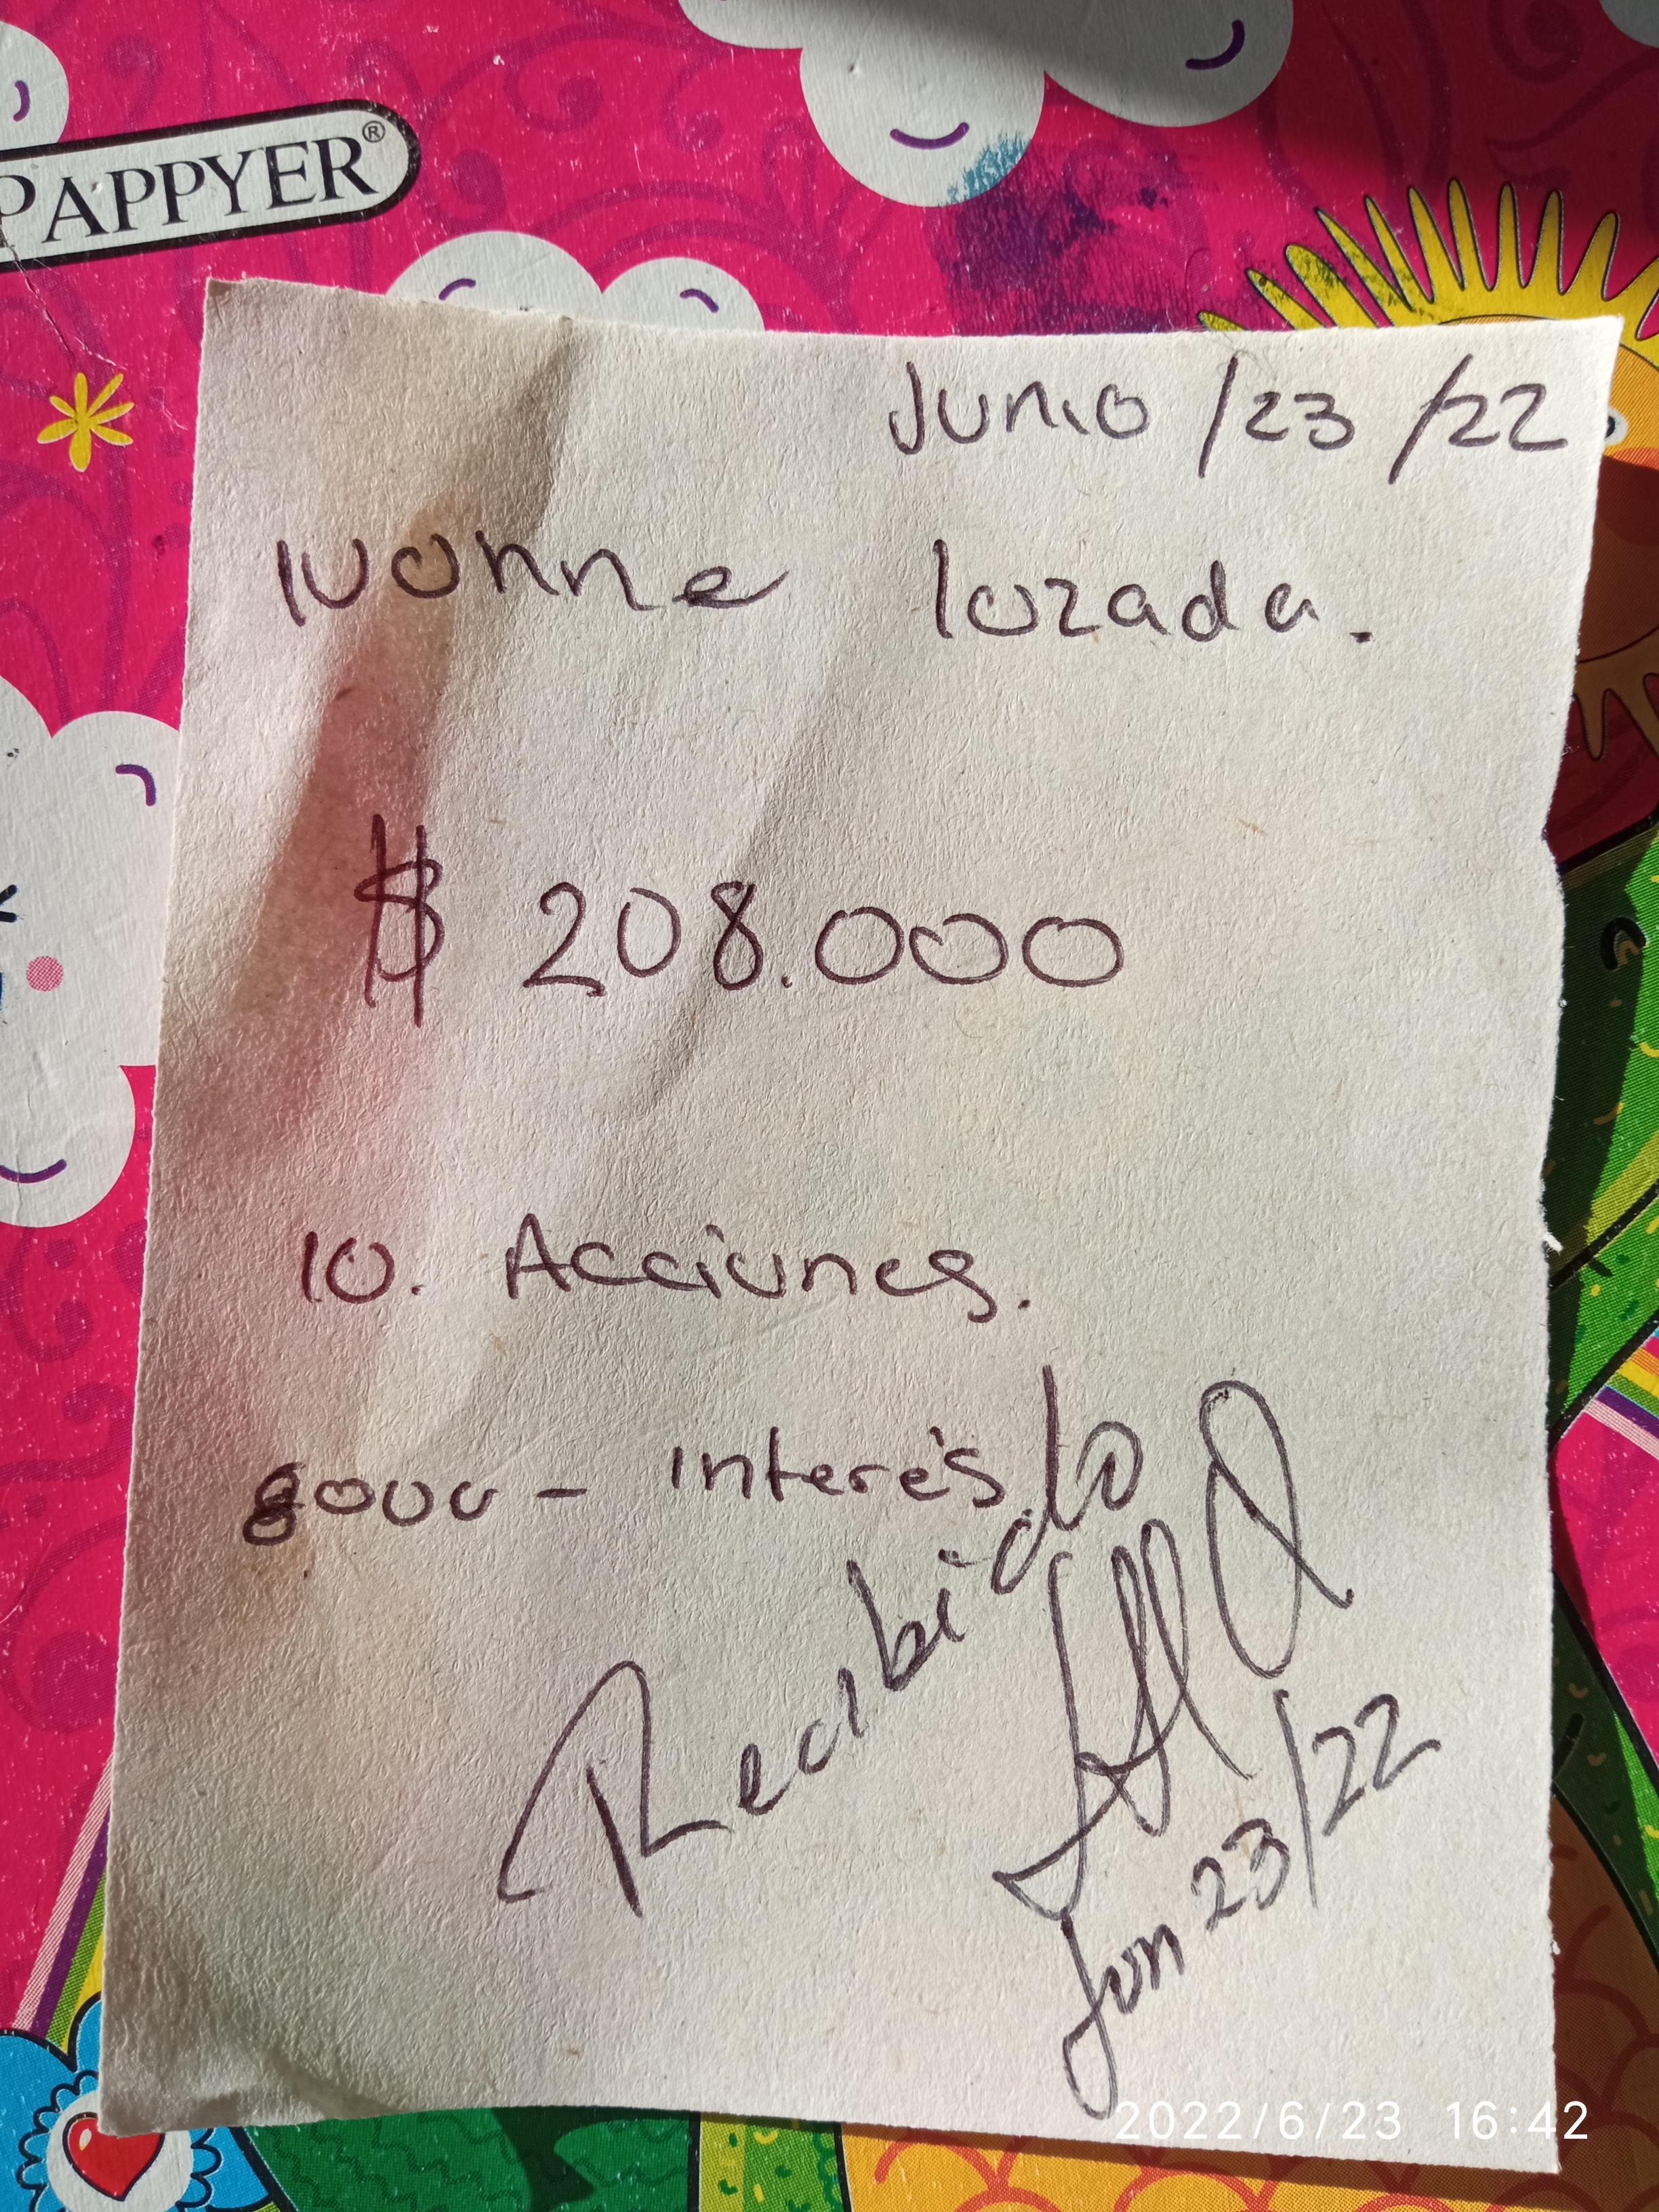 PAPPYER®
Junio /23 /22
Ivonne lozada.
$ 208.000
10. Acciones.
8000 - Interés
Recibido
Jun 23/22
2022/6/23 16:42